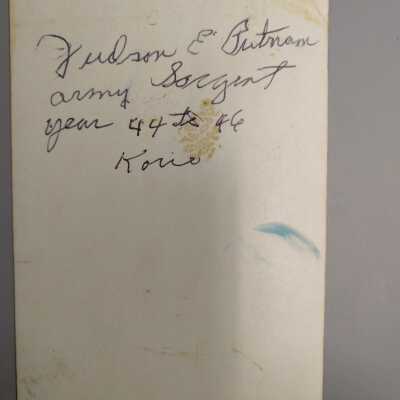 Hudson E Putnam
army Sargent
year 44 to 46